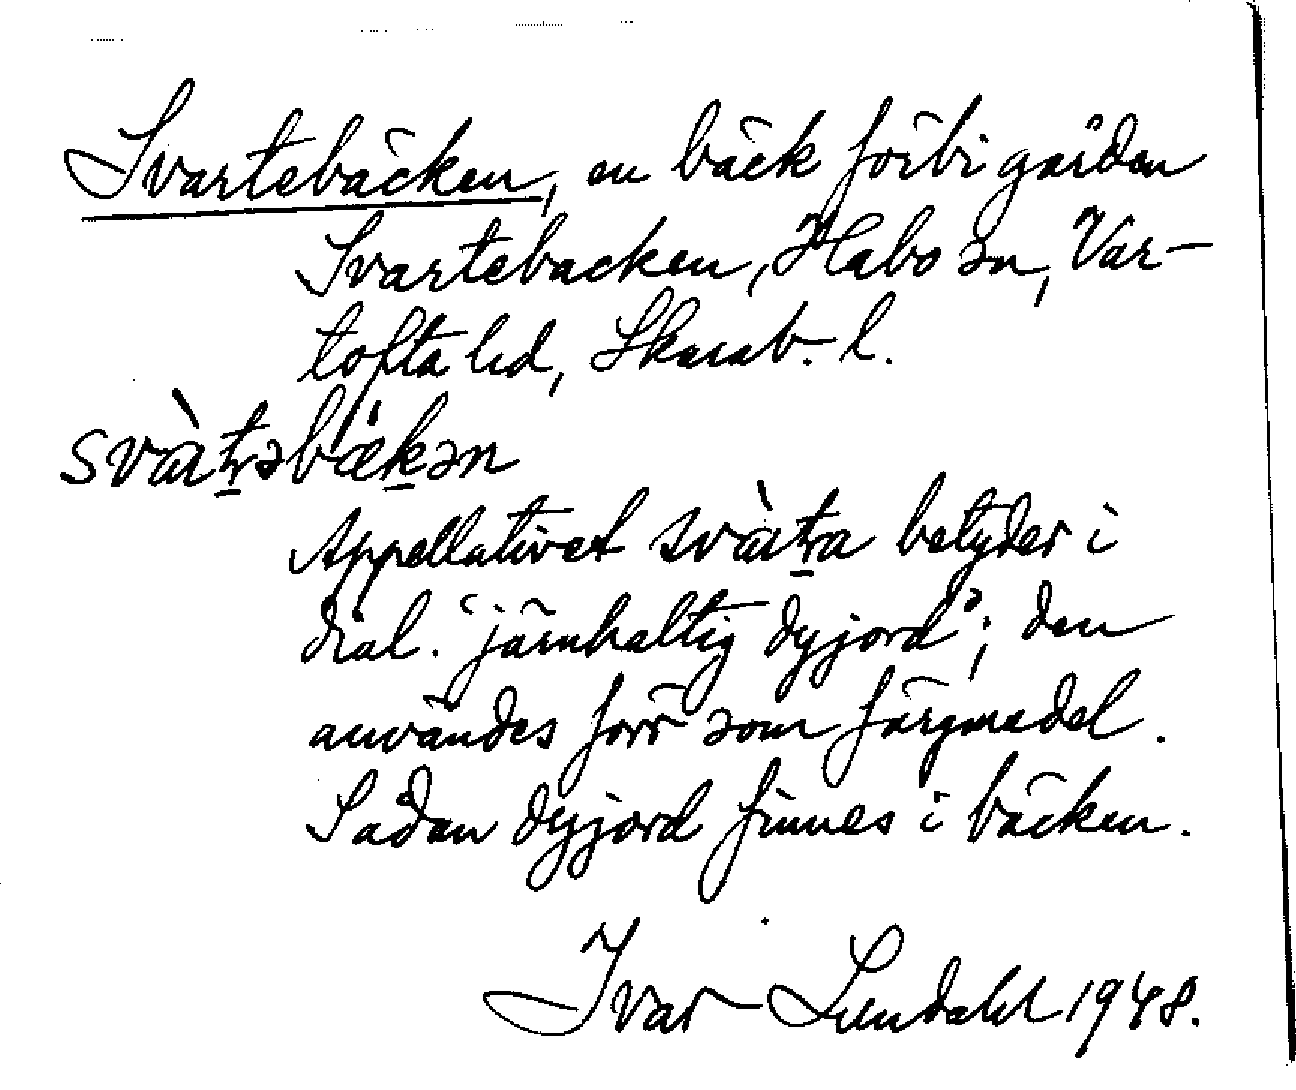 Svartebäcken, en bäck förbi gården
Svartebacken, Habo sn, Var-
tofta hd, Skarab. l.
svàʈəbækən
Appellativet svàʈa betyder i
dial. "järnhaltig dyjord"; den
användes förr som färgmedel.
Sådan dyjord finnes i bäcken.
Ivar Lundahl 1948.